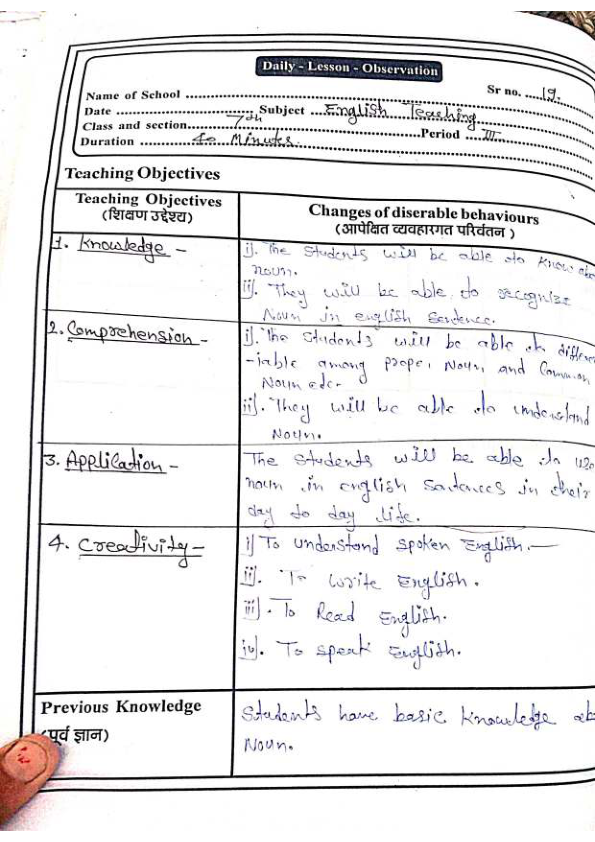 Daily - Lesson - Observation
Name of School ........ Sr no. .....19.
Date ........ Subject ... English Teaching
Class and section...... 7th ........Period ... III
Duration ........ 40 Minutes.
Teaching Objectives
Teaching Objectives
(शिक्षण उद्देश्य)
Changes of diserable behaviours
(आपेक्षित व्यवहारगत परिर्वतन )
1. Knowledge -
i). The Students will be able to know
noun.
ii). They will be able to recognize
Noun in english Sentence.
2. Comprehension -
i). The Students will be able
-iable among proper Noun and Common
Noun etc-
ii). They will be able to understand
Noun.
3. Application -
The Students will be able to use
noun in english Sentences in their
day to day life.
4. Creativity -
i) To understand spoken English.-
ii). To write English.
iii). To Read English.
iv). To speak English.
Previous Knowledge
(पूर्व ज्ञान)
Students have basic knowledge
Noun.